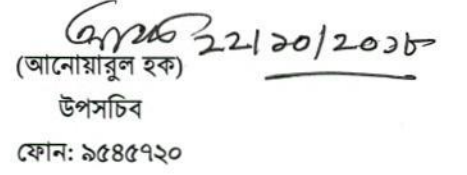 ২২/১০/২০১৮
(আনোয়ারুল হক)
উপসচিব
ফোন: ৯৫৪৫৭২০